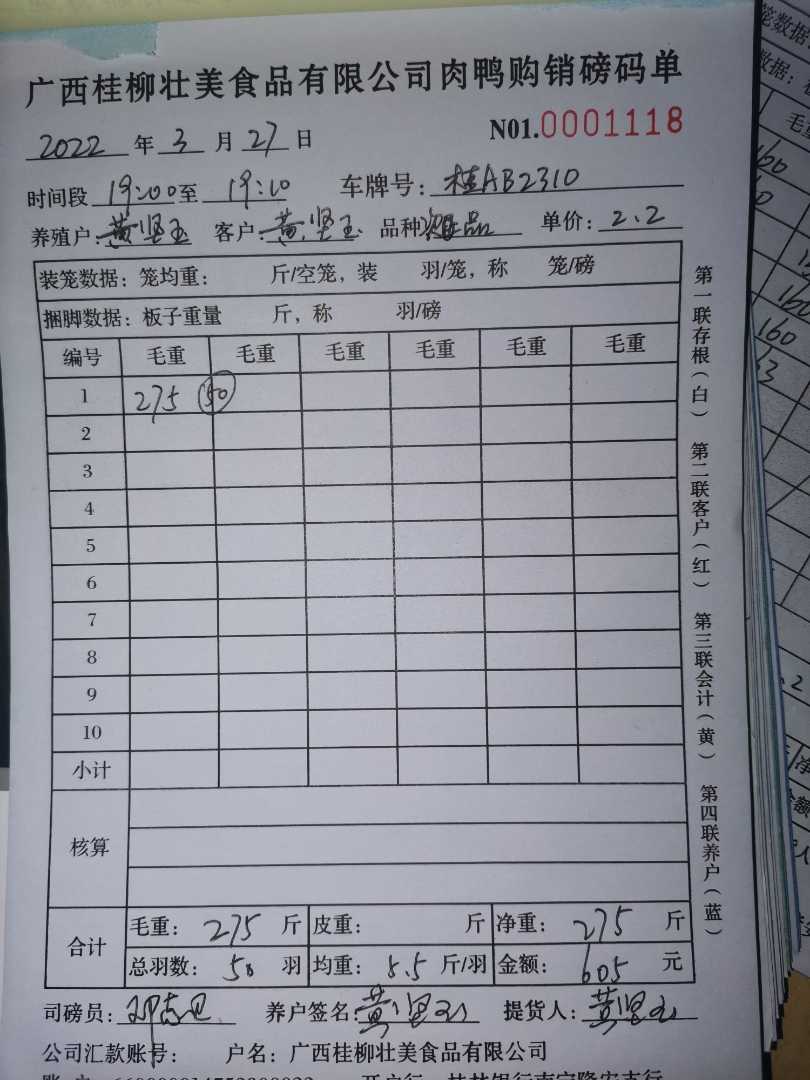 广西桂柳壮美食品有限公司肉鸭购销磅码单
2022 年 3 月 27 日 N01.0001118
时间段 19:00 至 19:10 车牌号: 桂AB2310
养殖户: 黄坚玉 客户: 黄坚玉 品种 品 单价: 2.2
装笼数据: 笼均重: 斤/空笼, 装 羽/笼, 称 笼/磅
捆脚数据: 板子重量 斤, 称 羽/磅
编号 毛重 毛重 毛重 毛重 毛重 毛重
1 275 50
2
3
4
5
6
7
8
9
10
小计
核算
合计 毛重: 275 斤 皮重: 斤 净重: 275 斤
总羽数: 50 羽 均重: 5.5 斤/羽 金额: 605 元
司磅员: 养户签名: 黄坚玉 提货人: 黄坚玉
公司汇款账号: 户名: 广西桂柳壮美食品有限公司
第一联存根(白) 第二联客户(红) 第三联会计(黄) 第四联养户(蓝)
笼数据
数据:
毛重
160
160
160